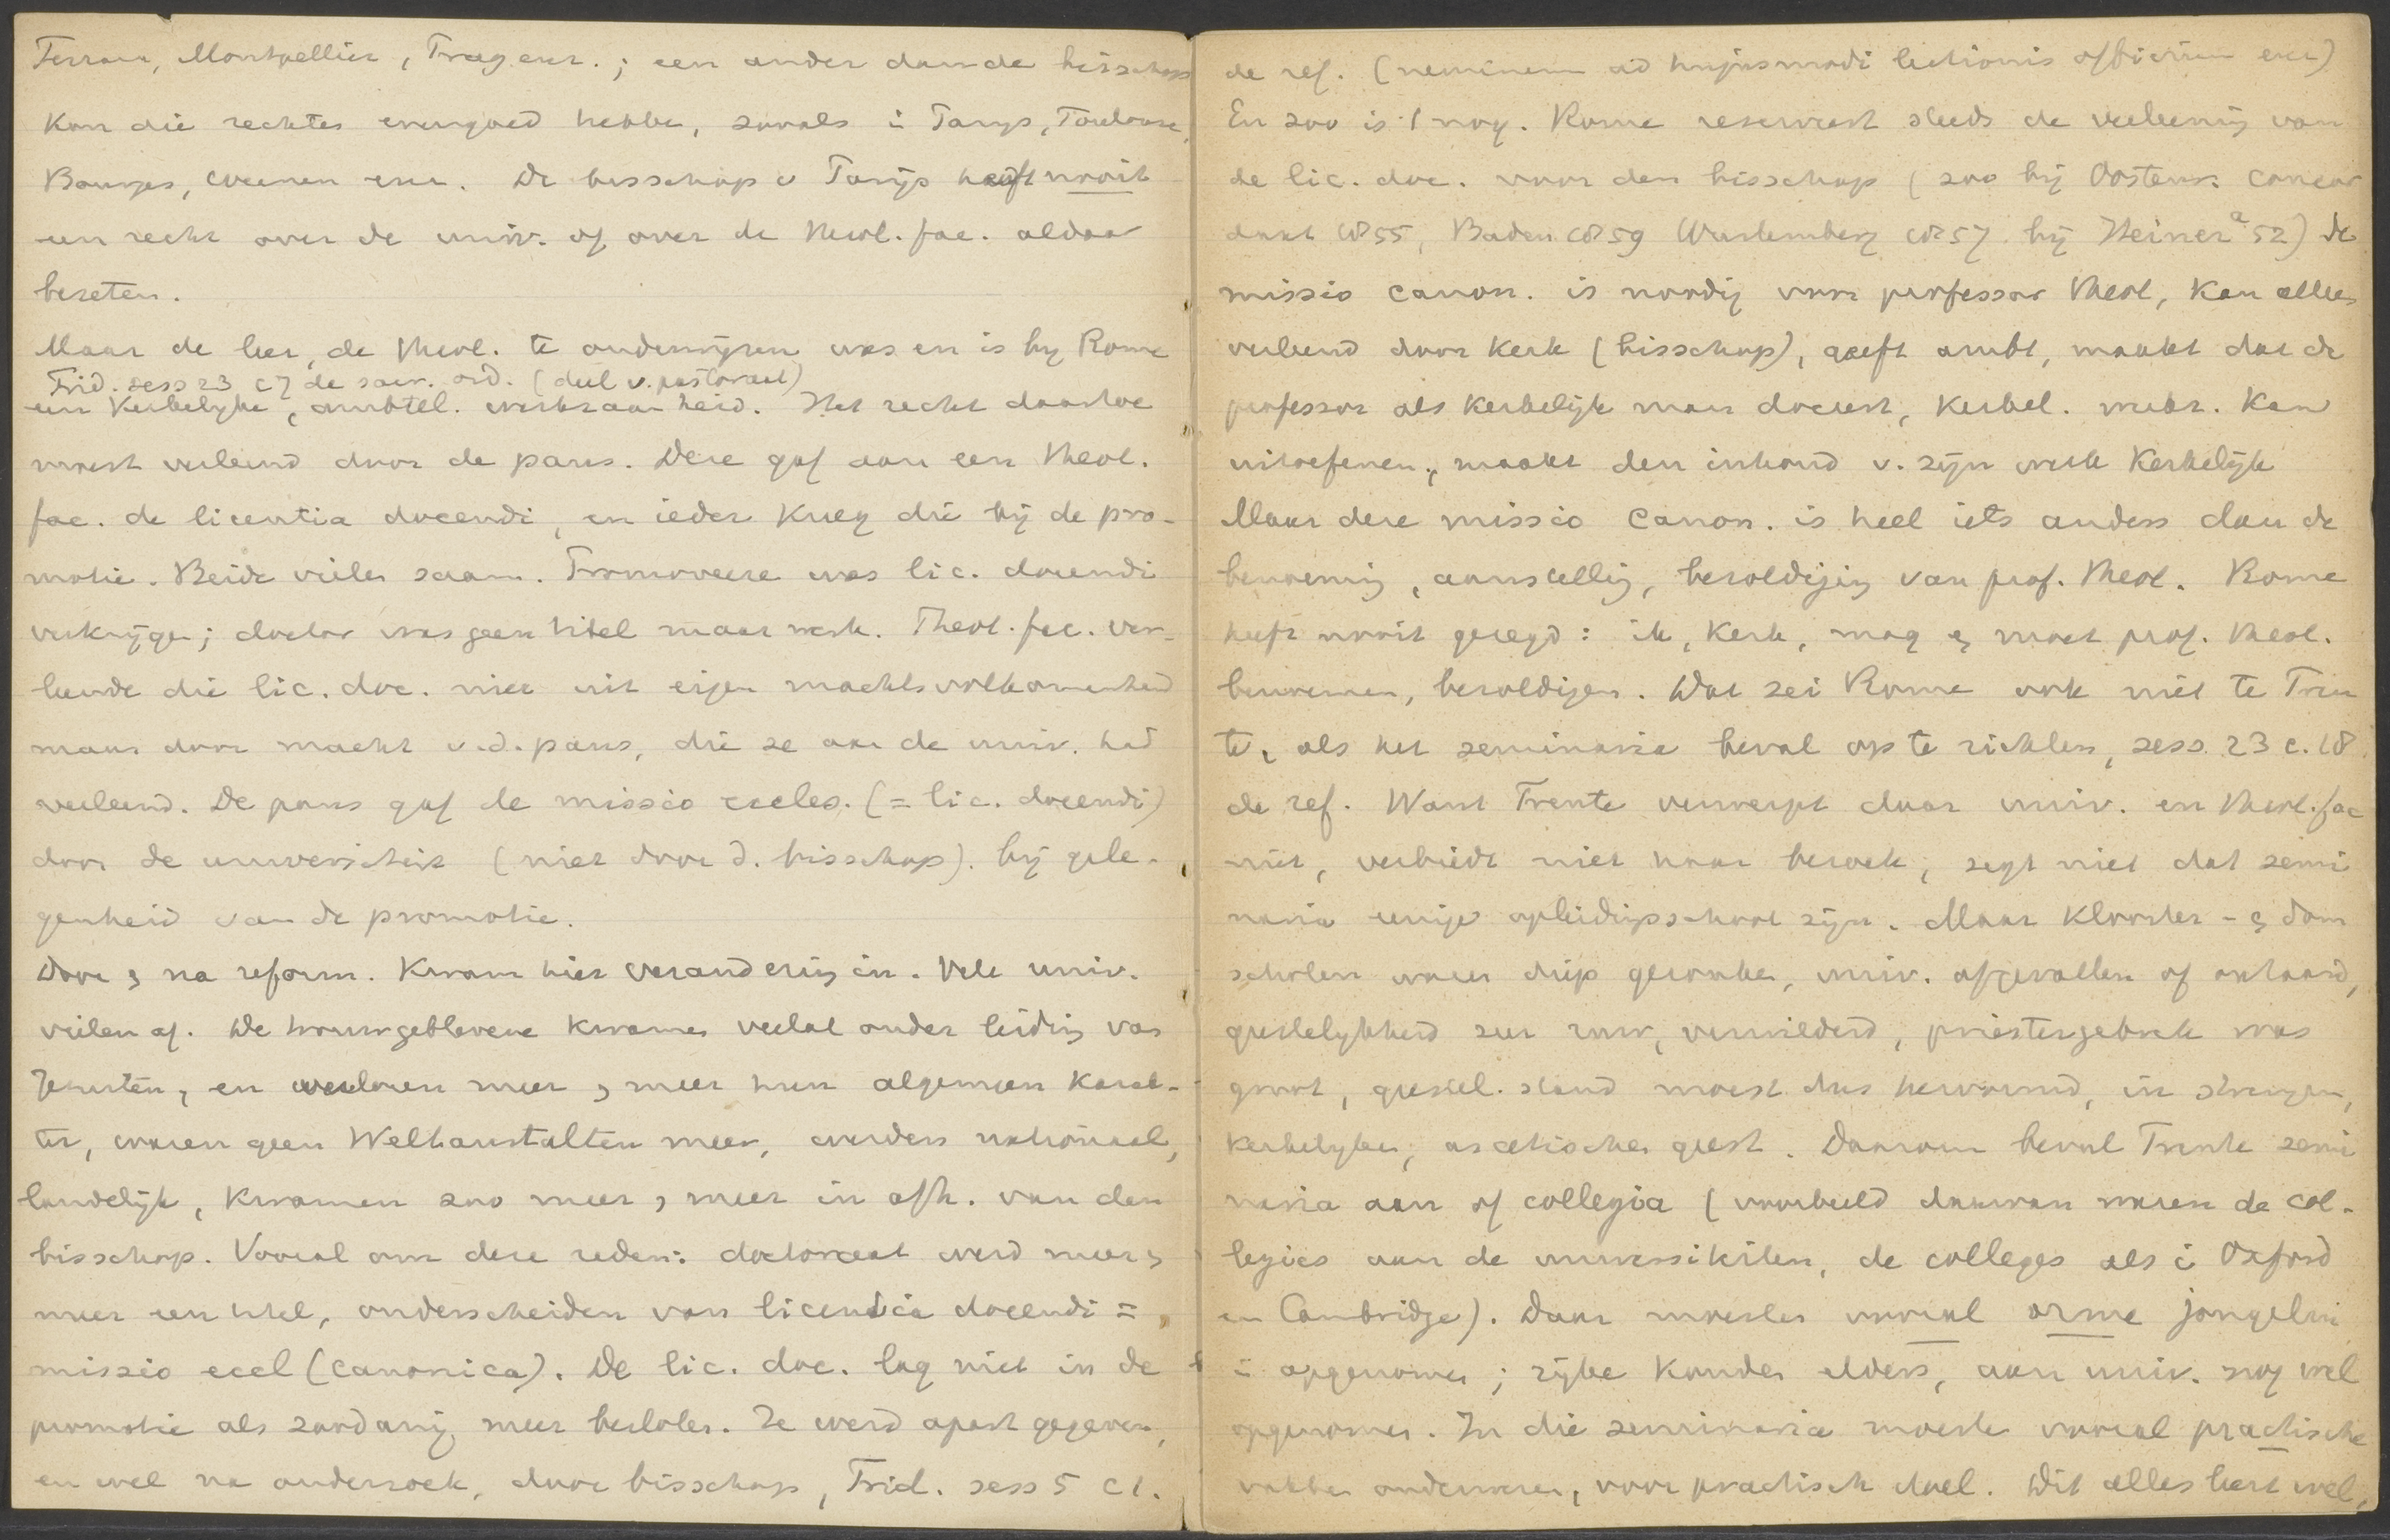 Ferrara, Montpellier, Praag enz.; een ander dan de bisschop
kon die rechten evengoed hebben, zooals i Parijs, Toulouse,
Bourges, Weenen enz. De bisschop v Parijs heeft nooit
een recht over de univ. of over de theol. fac. aldaar
bezeten.
Maar de leer, de theol. te onderwijzen was en is bij Rome
Trid. sess 23 c 7 de sacr. ord. (deel v. pastoraat)
een kerkelijke, ambtel. werkzaamheid. Het recht daartoe
moest verleend door de paus. Deze gaf aan een theol.
fac. de licentia docendi, en ieder kreeg die bij de pro-
motie. Beide vielen saam. Promoveeren was lic. docendi
verkrijgen; doctor was geen titel maar werk. Theol. fac. ver-
leende die lic. doc. niet uit eigen machtsvolkomenheid
maar door macht v.d. paus, die ze aan de univ. had
verleend. De paus gaf de missio eccles. (= lic. docendi)
door de universiteit (niet door d. bisschop). bij gele-
genheid van de promotie.
Door en na reform. kwam hier verandering in. Vele univ.
vielen af. De trouwgeblevene kwamen veelal onder leiding van
Jezuiten, en verloren meer en meer hun algemeen karak-
ter, waren geen Weltanstalten meer, werden nationaal,
landelijk, kwamen zoo meer en meer in afh. van den
bisschop. Vooral om deze reden: doctoraat werd meer en
meer een titel, onderscheiden van licentia docendi =
missio eccl (canonica). De lic. doc. lag niet in de
promotie als zoodanig meer besloten. Ze werd apart gegeven,
en wel na onderzoek, door bisschop, Trid. sess 5 c 1.
de ref. (neminem ad hujusmodi lectionis officium enz)
En zoo is 't nog. Rome reserveert steeds de verleening van
de lic. doc. voor den bisschop (zoo bij Oostenr. concor
daat 1855, Baden 1859 Wurtemberg 1857 bij Heiner a 52) de
missio canon. is noodig voor professor theol, kan alleen
verleend door kerk (bisschop), geeft ambt, maakt dat de
professor als kerkelijk man doceert, kerkel. werkz. kan
uitoefenen, maakt den inhoud v. zijn werk kerkelijk
Maar deze missio canon. is heel iets anders dan de
benoeming, aanstelling, bezoldiging van prof. theol. Rome
heeft nooit gezegd: ik, kerk, mag en moet prof. theol.
benoemen, bezoldigen. Dat zei Rome ook niet te Tren
te, als het seminaria beval op te richten, sess. 23 c. 18
de ref. Want Trente verwerpt daar univ. en theol. fac
niet, verbiedt niet haar bezoek, zegt niet dat semi
naria eenige opleidingsschool zijn. Maar klooster- en dom
scholen waren diep gezonken, univ. afgevallen of ontaard,
geestelijkheid zeer ruw, verwilderd, priestergebrek was
groot, geestel. stand moest dus hervormd, in strengen,
kerkelijken, ascetischen geest. Daarom beval Trente semi
naria aan of collegia (voorbeeld daarvan waren de col-
legies aan de universiteiten, de colleges als i Oxford
en Cambridge). Daar moesten vooral arme jongelui
i opgenomen; rijke konden elders, aan univ. nog wel
opgenomen. In die seminaria moesten vooral practische
vakken onderwezen, voor practisch doel. Dit alles leert wel,